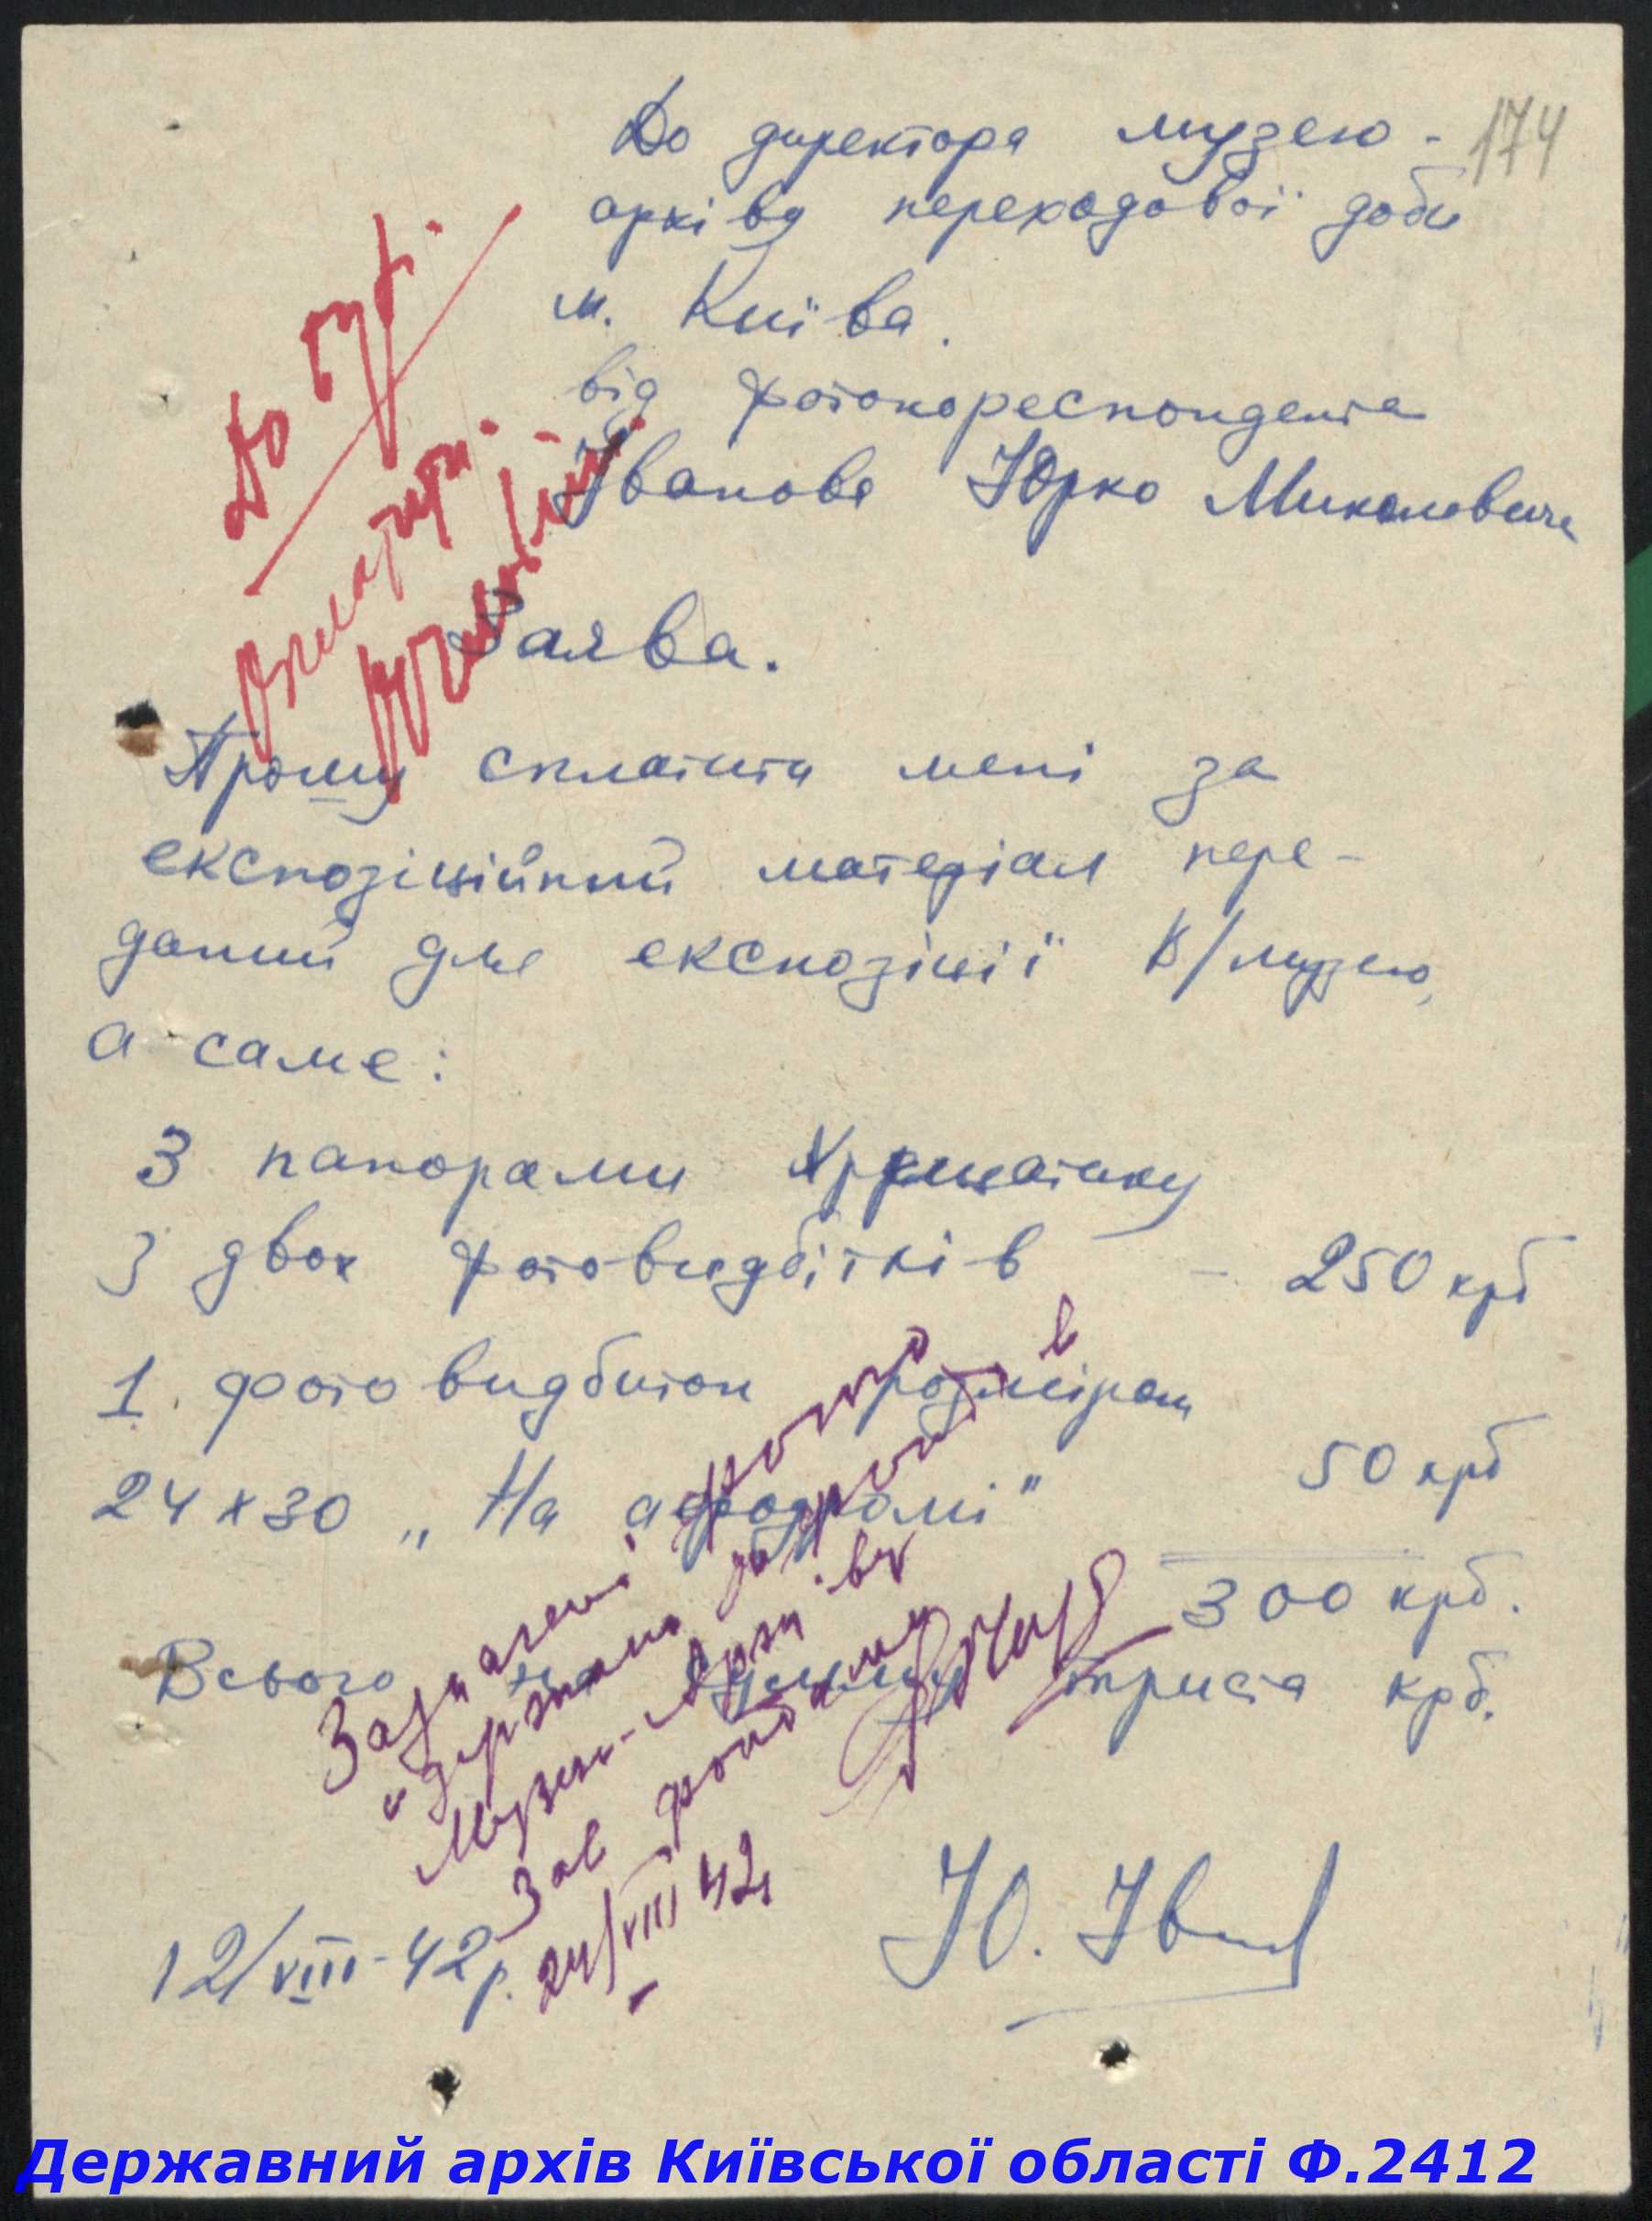 До директора музею -
174
архіву переходової доби
м. Київа.
від фотокореспондента
Іванова Юрко Миколаевича
До бух.
Заява.
Прошу сплатити мені за
експозіційний матеріал пере-
даний для експозіції К/музею,
а саме:
3 панорами Хрещатику
з двох фотовидбітків - 250 крб
1. фото видбиток розміром
24 х 30 „На аеродромі" 50 крб
300 крб.
Всього на суму триста крб.
Зазначені фото
одержано до фондів
Музею-Архіву
Зав фондами
24/VIII 42
12/VIII-42 р.
Ю. Іванов
Державний архів Київської області Ф.2412